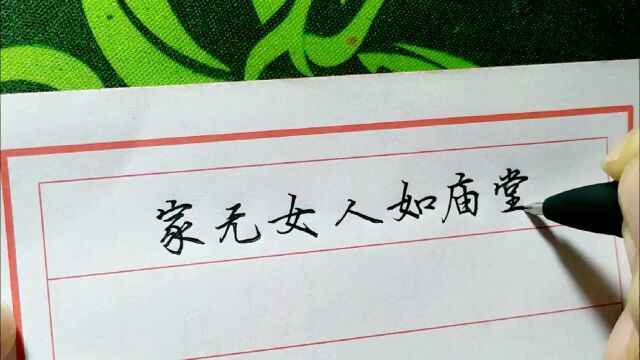 家无女人如庙堂